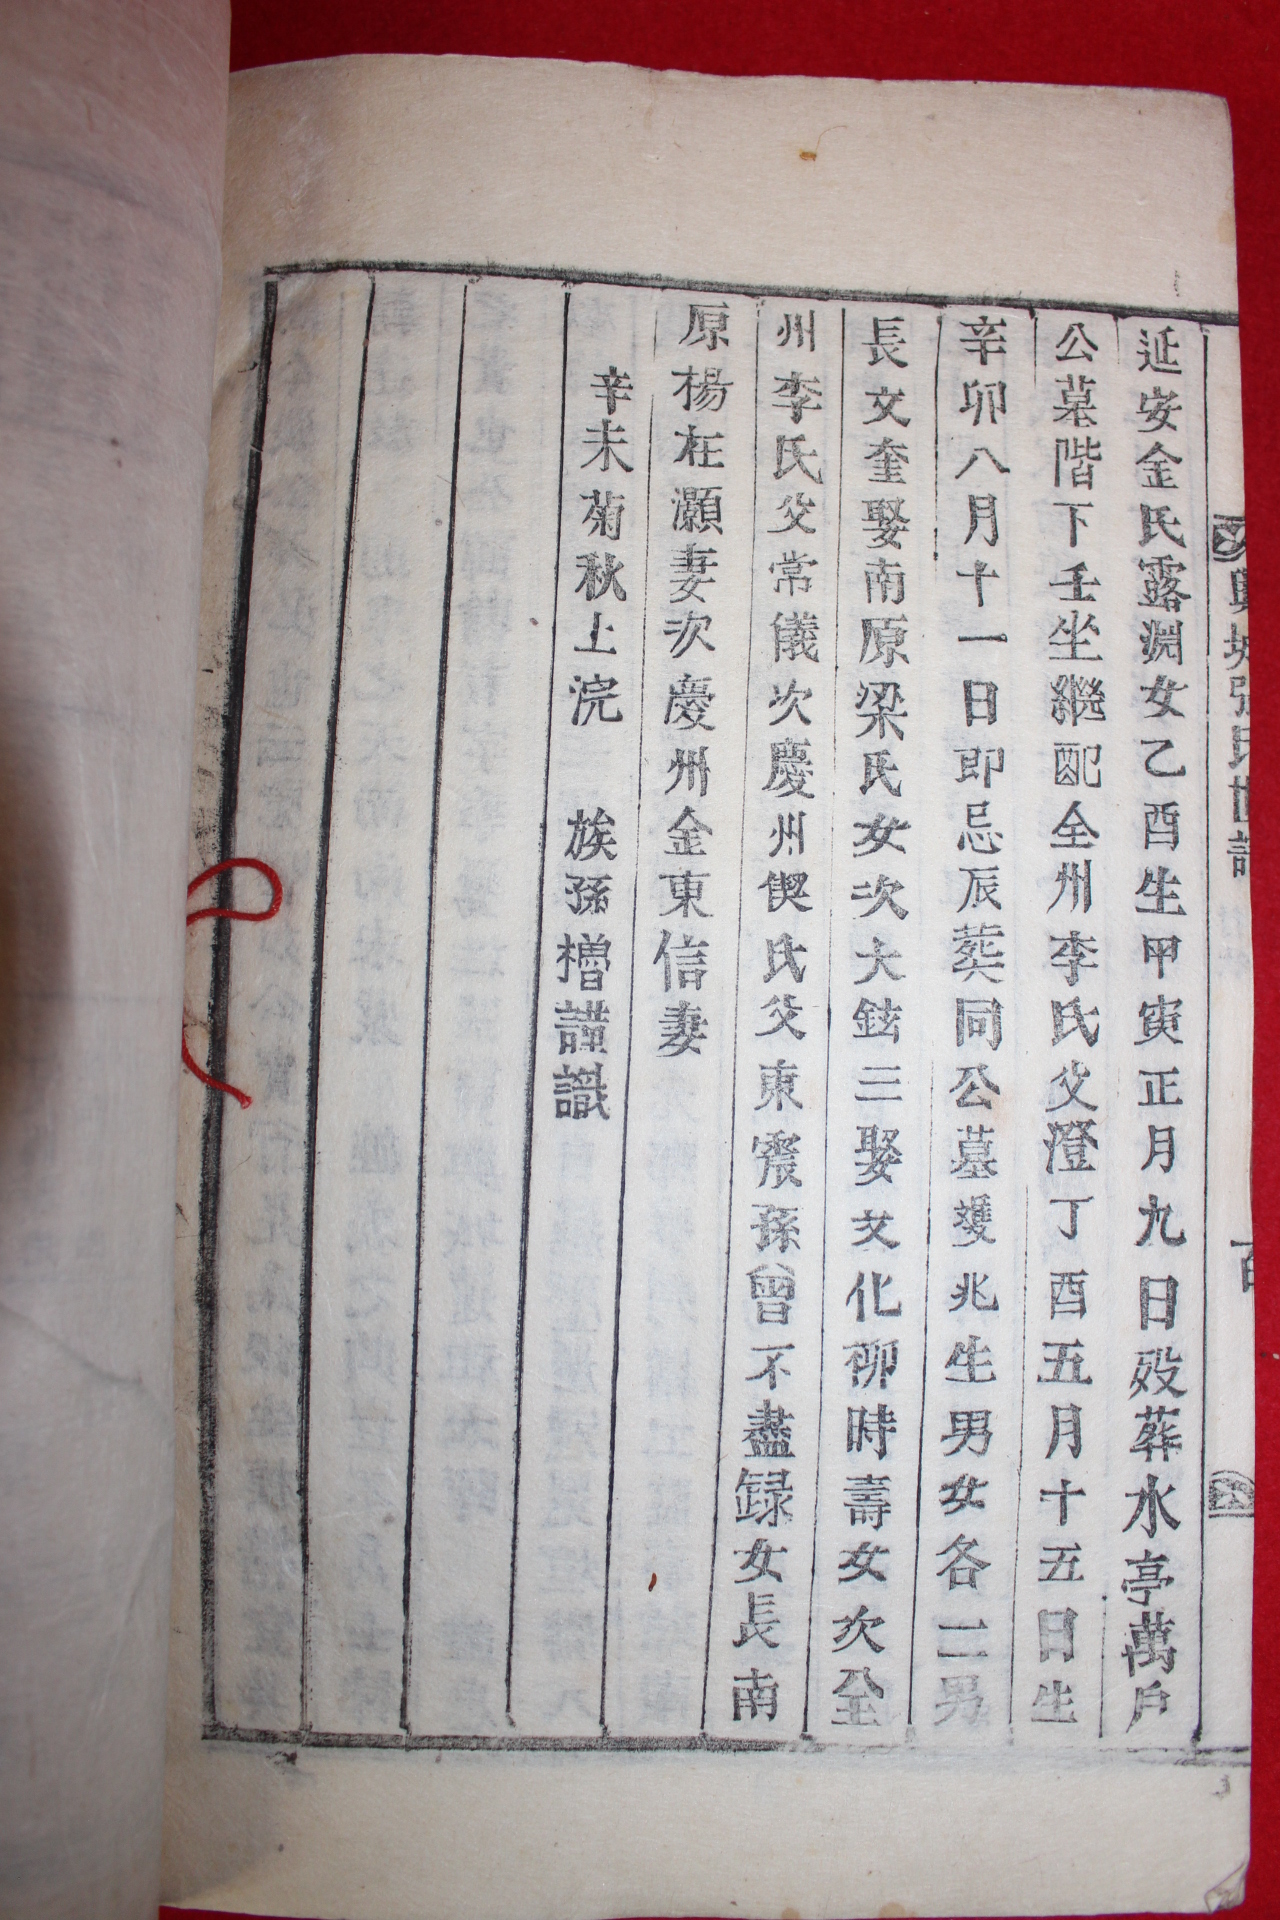 延安金氏露淵女乙酉生甲寅正月九日歿葬水亭萬戶
公墓階下壬坐繼配全州李氏父澄丁酉五月十五日生
辛卯八月十一日即忌辰葬同公墓雙兆生男女各二男
長文奎娶南原梁氏女次大鉉三娶文化柳時壽女次全
州李氏父常儀次慶州偰氏父東震孫曾不盡録女長南
原楊在灝妻次慶州金東信妻
辛未菊秋上浣 族孫橧謹識
興城張氏世譜